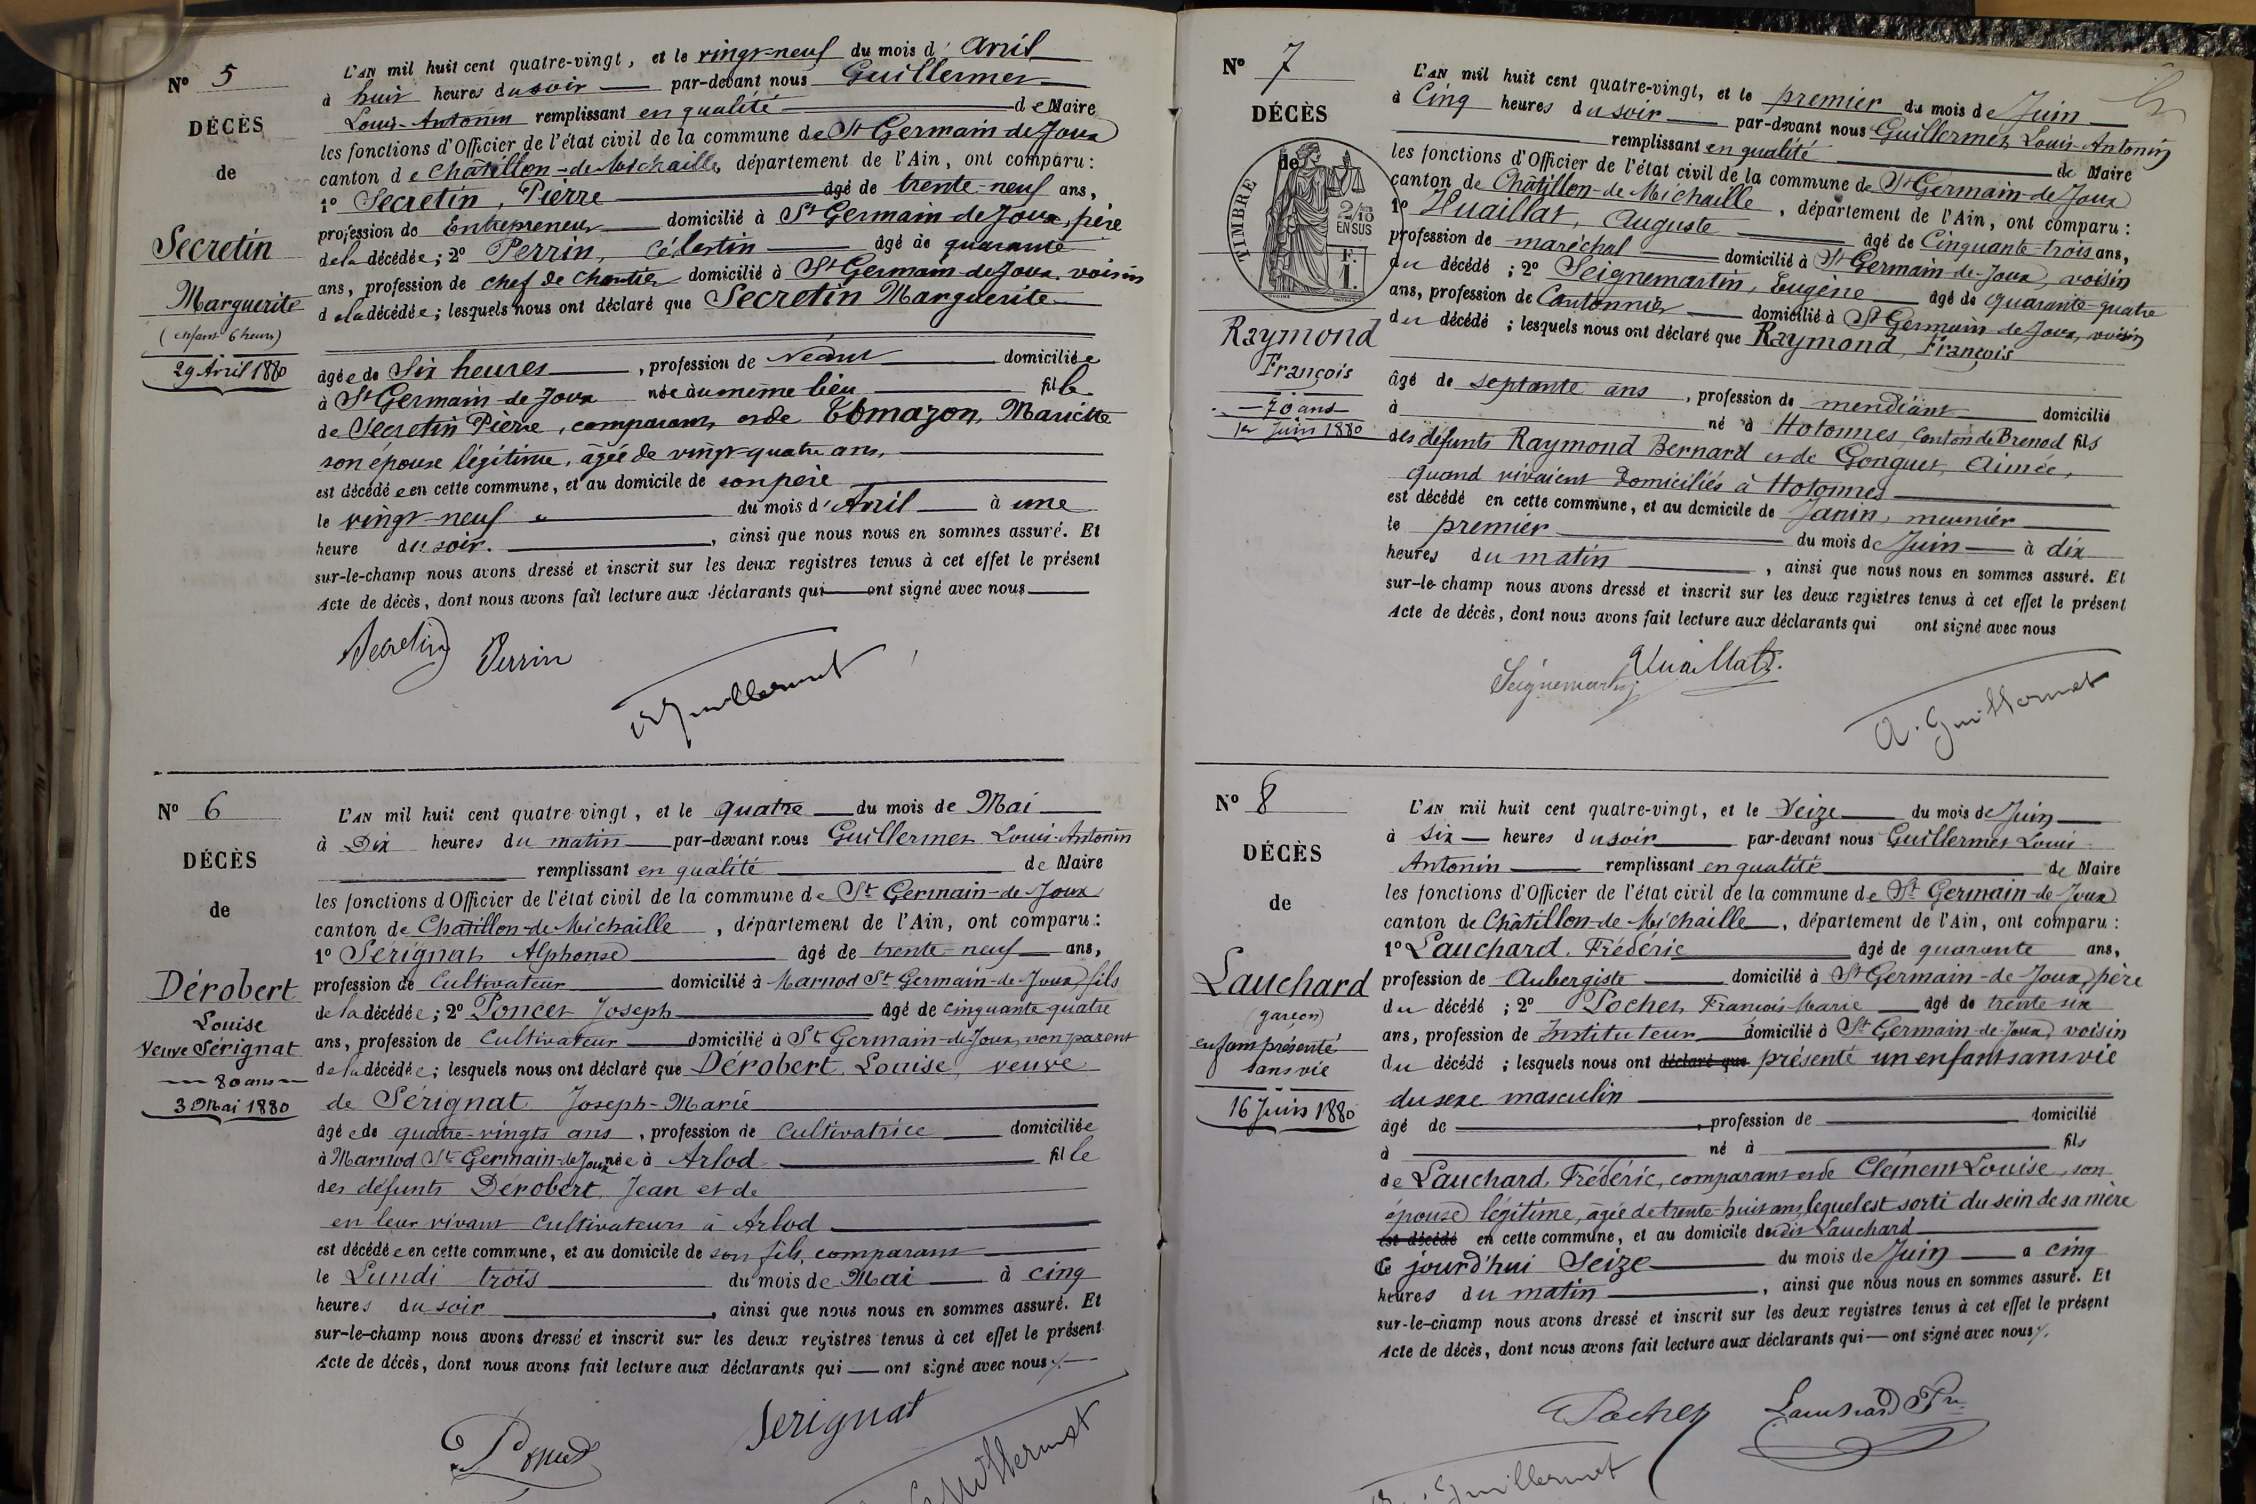 N° 5
DÉCÈS
de
Secretin
Marguerite
(enfant 6 heures)
29 Avril 1880
L'AN mil huit cent quatre-vingt, et le vingt-neuf du mois d'Avril
à huit heures du soir par-devant nous Guillermet
Louis-Antonin remplissant en qualité de Maire
les fonctions d'Officier de l'état civil de la commune de St Germain de Joux
canton de Châtillon-de-Michaille, département de l'Ain, ont comparu :
1° Secretin, Pierre âgé de trente-neuf ans,
profession de Entrepreneur domicilié à St Germain-de-Joux, père
de la décédée ; 2° Perrin, Célestin âgé de quarante
ans, profession de chef de chantier domicilié à St Germain-de-Joux, voisin
de la décédée ; lesquels nous ont déclaré que Secretin Marguerite
âgée de Six heures, profession de Néant domiciliée
à St Germain-de-Joux née au même lieu fille
de Secretin Pierre, comparant, et de Mariette
son épouse légitime, âgée de vingt-quatre ans,
est décédée en cette commune, et au domicile de son père
le vingt-neuf du mois d'Avril à une
heure du soir. , ainsi que nous nous en sommes assuré. Et
sur-le-champ nous avons dressé et inscrit sur les deux registres tenus à cet effet le présent
Acte de décès, dont nous avons fait lecture aux déclarants qui ont signé avec nous
Secretin Perrin
A Guillermet
N° 6
DÉCÈS
de
Dérobert
Louise
Veuve Sérignat
80 ans
3 Mai 1880
L'AN mil huit cent quatre-vingt, et le quatre du mois de Mai
à Dix heures du matin par-devant nous Guillermet Louis-Antonin
remplissant en qualité de Maire
les fonctions d'Officier de l'état civil de la commune de St Germain-de-Joux
canton de Châtillon-de-Michaille, département de l'Ain, ont comparu :
1° Sérignat Alphonse âgé de trente-neuf ans,
profession de Cultivateur domicilié à Marnod St Germain-de-Joux, fils
de la décédée ; 2° Poncet Joseph âgé de cinquante-quatre
ans, profession de Cultivateur domicilié à St Germain-de-Joux, non parent
de la décédée ; lesquels nous ont déclaré que Dérobert Louise, veuve
de Sérignat Joseph-Marie
âgée de quatre-vingts ans, profession de Cultivatrice domiciliée
à Marnod St Germain-de-Joux née à Arlod fille
des défunts Dérobert, Jean et de
en leur vivant cultivateurs à Arlod
est décédée en cette commune, et au domicile de son fils, comparant
le Lundi trois du mois de Mai à cinq
heures du soir, ainsi que nous nous en sommes assuré. Et
sur-le-champ nous avons dressé et inscrit sur les deux registres tenus à cet effet le présent
Acte de décès, dont nous avons fait lecture aux déclarants qui ont signé avec nous
Poncet Serignat
Guillermet
N° 7
DÉCÈS
de
TIMBRE
2/10
EN SUS
F.
1.
Raymond
François
70 ans
1er Juin 1880
L'AN mil huit cent quatre-vingt, et le premier du mois de Juin
à Cinq heures du soir par-devant nous Guillermet Louis-Antonin
remplissant en qualité de Maire
les fonctions d'Officier de l'état civil de la commune de St Germain-de-Joux
canton de Châtillon-de-Michaille, département de l'Ain, ont comparu :
1° Vuaillat, Auguste âgé de Cinquante-trois ans,
profession de maréchal domicilié à St Germain-de-Joux, voisin
du décédé ; 2° Seignemartin, Eugène âgé de quarante-quatre
ans, profession de Cantonnier domicilié à St Germain-de-Joux, voisin
du décédé ; lesquels nous ont déclaré que Raymond, François
âgé de septante ans, profession de mendiant domicilié
à né à Hotonnes, canton de Brenod fils
des défunts Raymond Bernard et de Gonguet, Aimée,
quand vivaient Domiciliés à Hotonnes
est décédé en cette commune, et au domicile de Janin, meunier
le premier du mois de Juin à dix
heures du matin, ainsi que nous nous en sommes assuré. Et
sur-le-champ nous avons dressé et inscrit sur les deux registres tenus à cet effet le présent
Acte de décès, dont nous avons fait lecture aux déclarants qui ont signé avec nous
Seignemartin Vuaillat
A. Guillermet
N° 8
DÉCÈS
de
Lauchard
(garçon)
enfant présenté
sans vie
16 Juin 1880
L'AN mil huit cent quatre-vingt, et le Seize du mois de Juin
à six heures du soir par-devant nous Guillermet Louis-
Antonin remplissant en qualité de Maire
les fonctions d'Officier de l'état civil de la commune de St Germain-de-Joux
canton de Châtillon-de-Michaille, département de l'Ain, ont comparu :
1° Lauchard, Frédéric âgé de quarante ans,
profession de Aubergiste domicilié à St Germain-de-Joux, père
du décédé ; 2° Pochet, François-Marie âgé de trente six
ans, profession de Instituteur domicilié à St Germain-de-Joux, voisin
du décédé ; lesquels nous ont déclaré que présenté un enfant sans vie
du sexe masculin
âgé de , profession de domicilié
à né à fils
de Lauchard, Frédéric, comparant et de Clément Louise, son
épouse légitime, âgée de trente-huit ans, lequel est sorti du sein de sa mère
est décédé en cette commune, et au domicile du dit Lauchard
Ce jourd'hui Seize du mois de Juin à cinq
heures du matin, ainsi que nous nous en sommes assuré. Et
sur-le-champ nous avons dressé et inscrit sur les deux registres tenus à cet effet le présent
Acte de décès, dont nous avons fait lecture aux déclarants qui ont signé avec nous.
Pochet Lauchard Fr
A. Guillermet